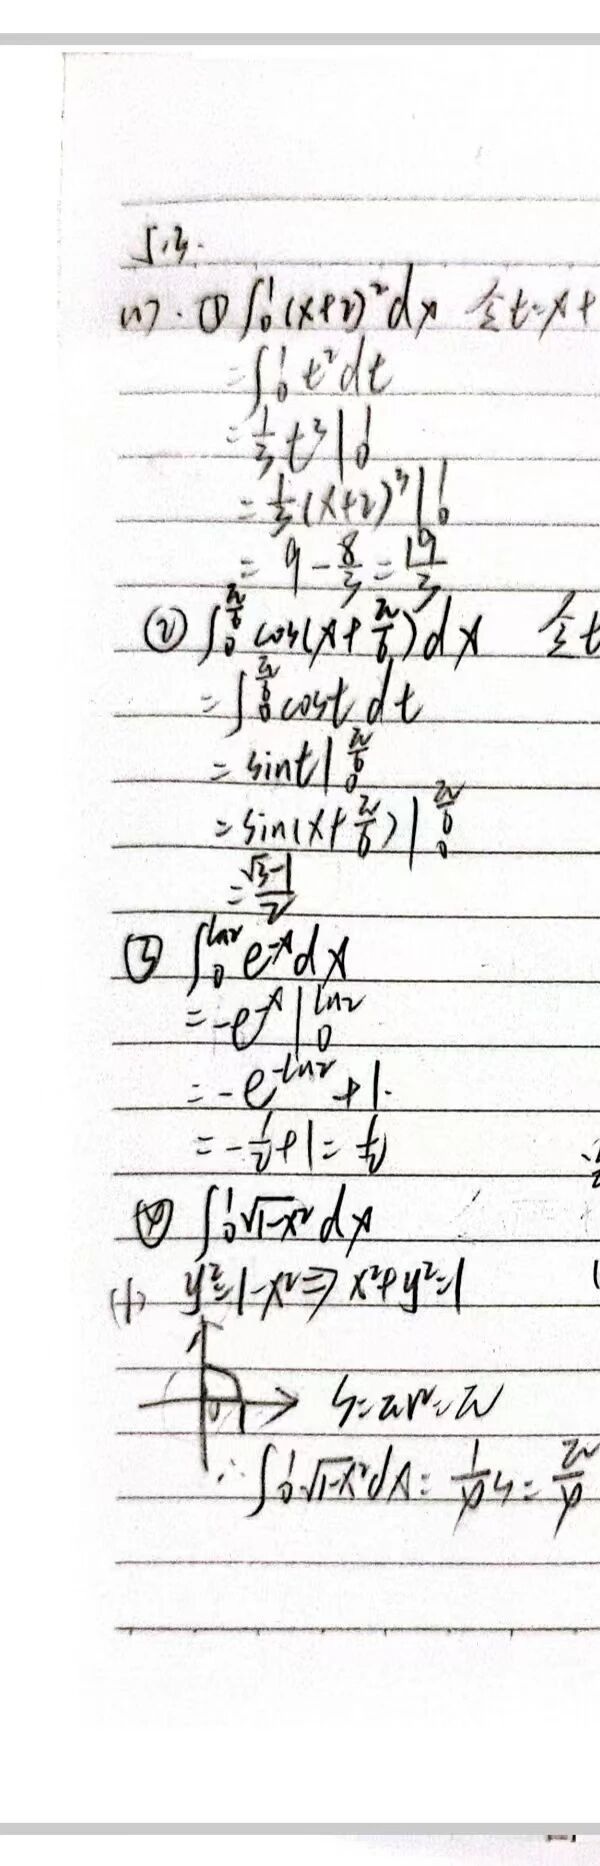 5.3.
(1). ① ∫₀¹(x+2)²dx 令t=x+
=∫₀¹t²dt
=1/3 t³|₀¹
=1/3(x+2)³|₀¹
=9-8/3=19/3
② ∫₀^(π/6) cos(x+π/6)dx 令t
=∫₀^(π/6) cost dt
=sint|₀^(π/6)
=sin(x+π/6)|₀^(π/6)
=(√3-1)/2
③ ∫₀^(ln2) e^(-x)dx
=-e^(-x)|₀^(ln2)
=-e^(-ln2)+1.
=-1/2+1=1/2
④ ∫₀¹√(1-x²)dx
y²=1-x²⇒x²+y²=1
S=πr²=π
∴∫₀¹√(1-x²)dx=1/4 S=π/4